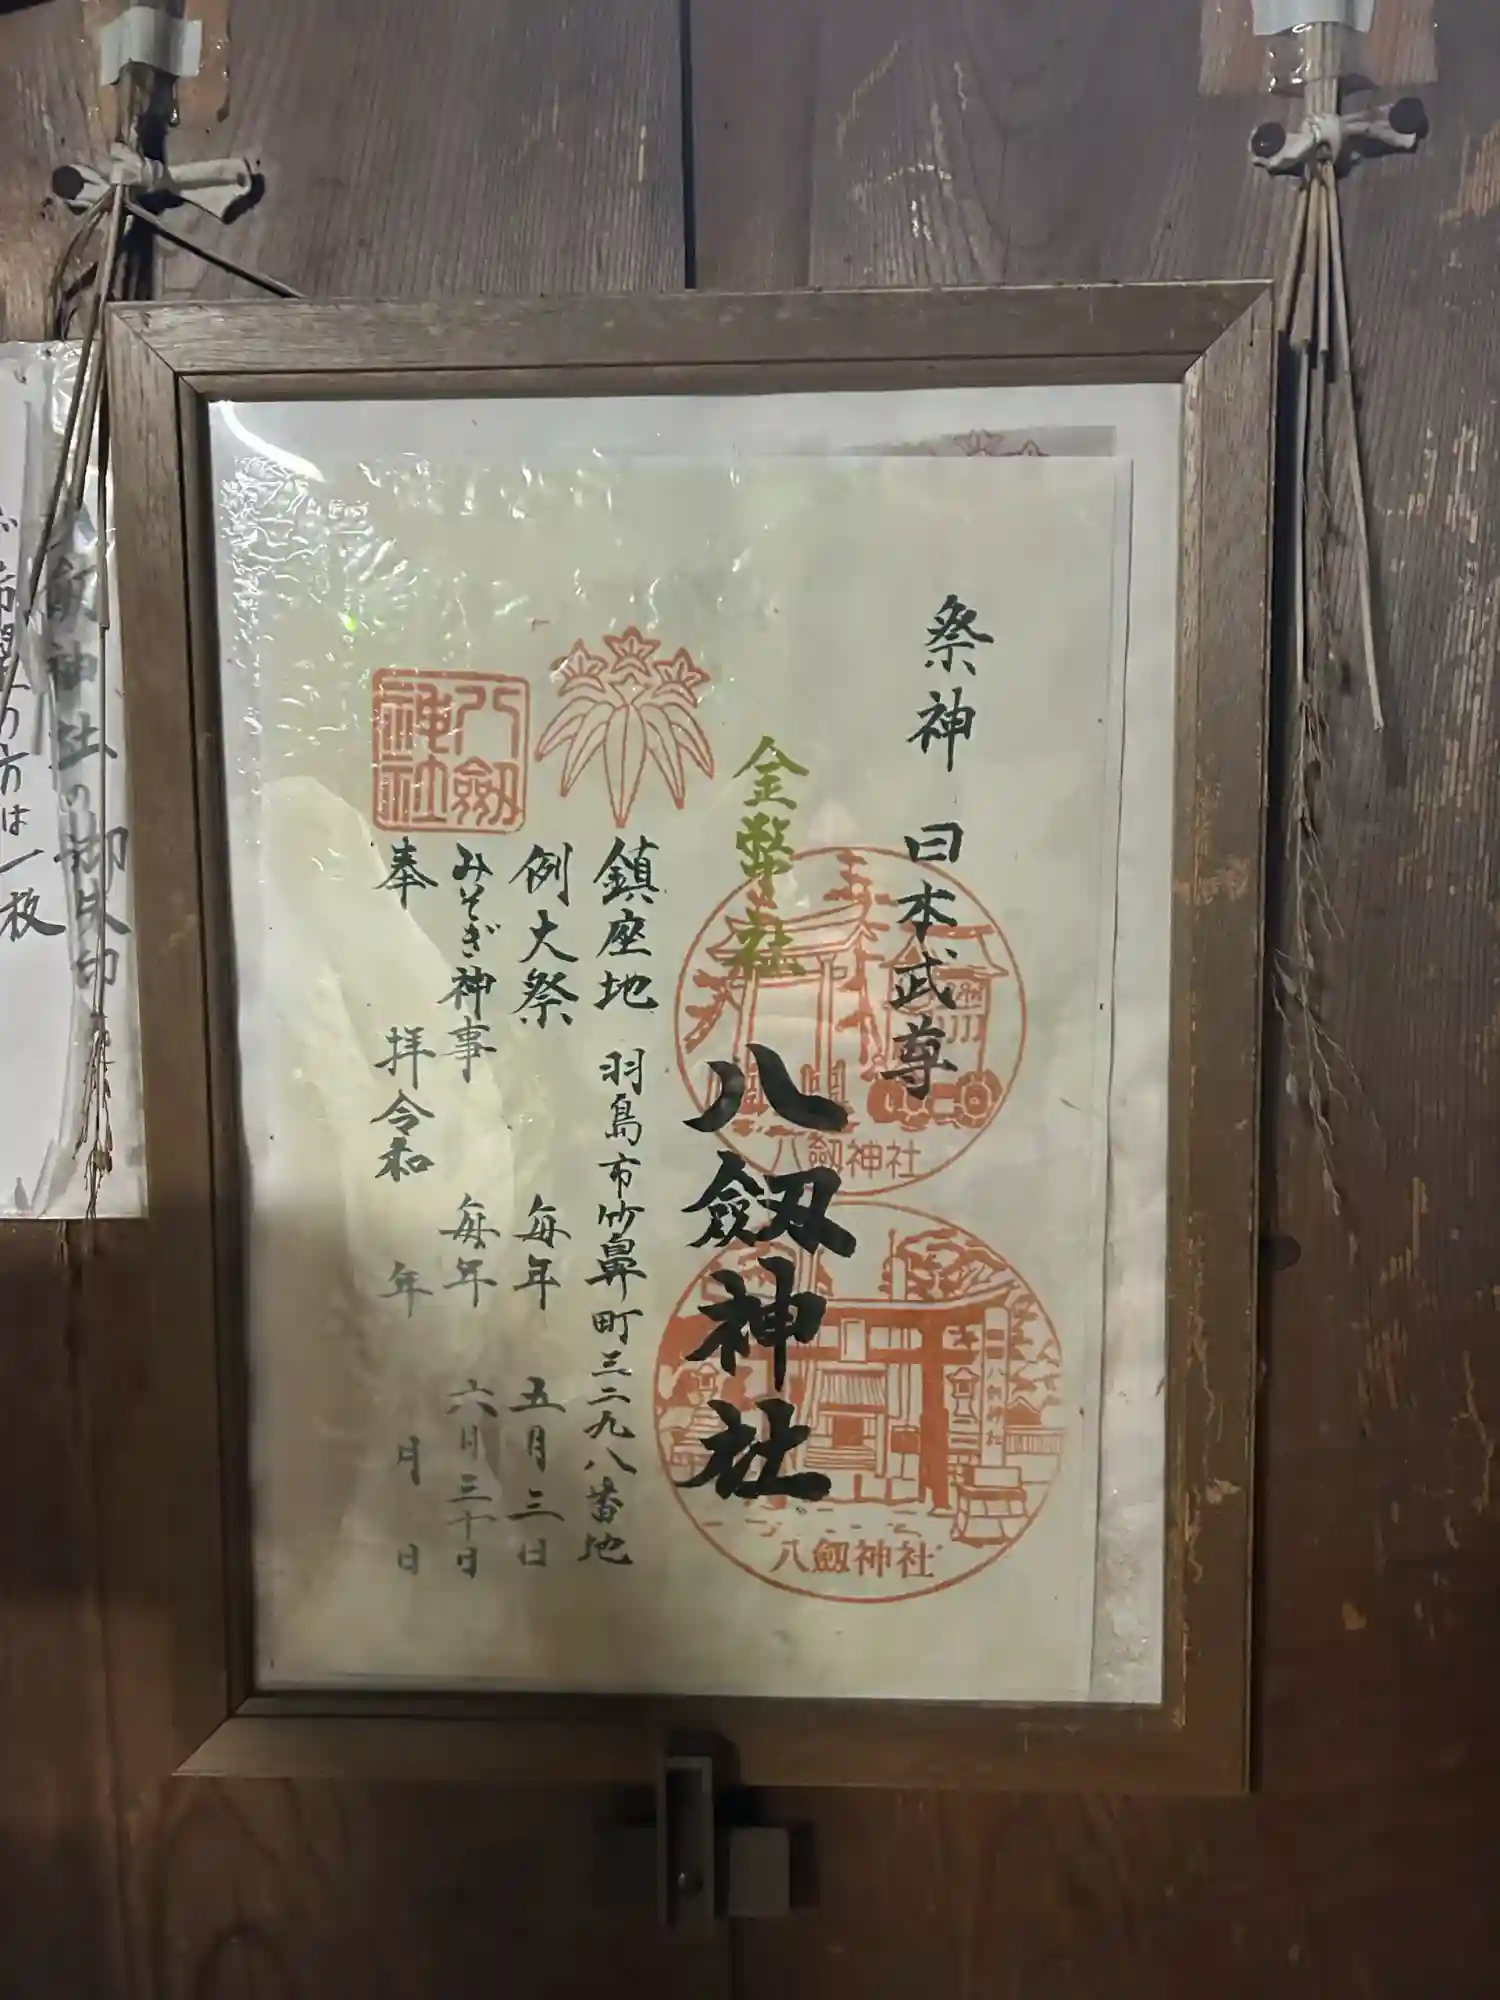 祭神 日本武尊
金幣社
八劔神社
鎮座地 羽島市竹鼻町三二九八番地
例大祭 毎年 五月三日
みそぎ神事 毎年 六月三十日
奉 拝 令和 年 月 日
八劔
神社
八劔神社
八劔神社
八劔神社
神社の御朱印
希望の方は一枚